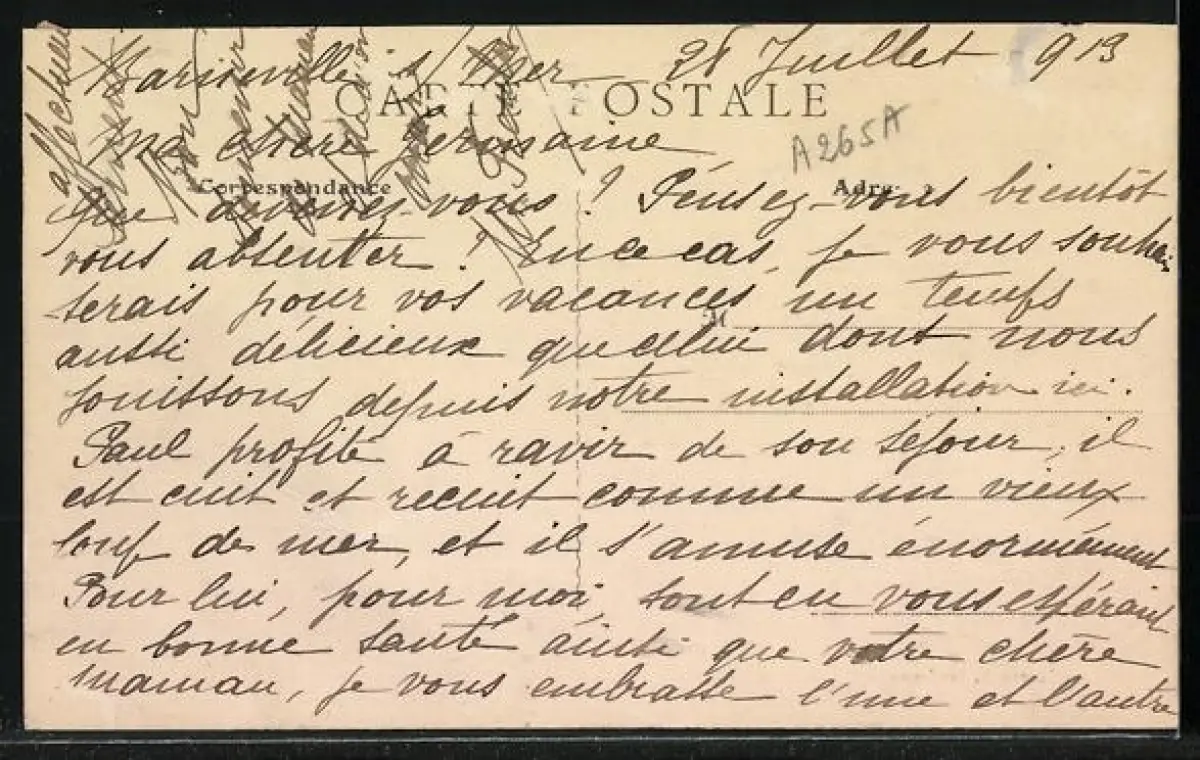 s/ Mer 28 Juillet 913
CARTE POSTALE
Ma chère Germaine
A265A
Correspondance
Que devenez-vous ? Pensez-vous bientôt
vous absenter ? En ce cas, je vous souhai
terais pour vos vacances un temps
aussi délicieux que celui dont nous
jouissons depuis notre installation ici.
Paul profite à ravir de son séjour, il
est cuit et recuit comme un vieux
loup de mer, et il s'amuse énormément
Pour lui, pour moi, tout en vous espérant
en bonne santé ainsi que votre chère
maman, je vous embrasse l'une et l'autre
affectueu